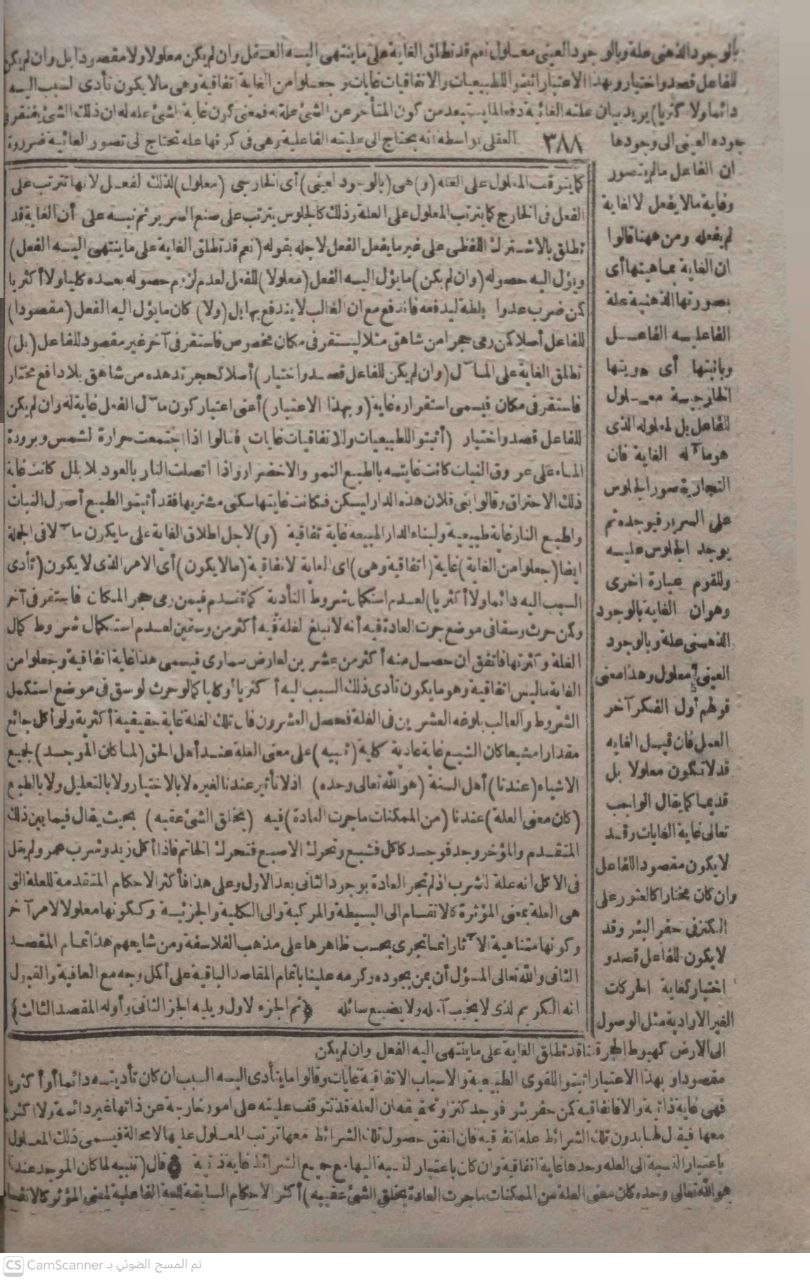 بالوجود الذهني علة وبالوجود العيني معلول نعم قد تطلق الغاية على ما ينتهي اليه الفعل وان لم يكن معلولا ولا مقصودا بل وان لم يكن
للفاعل قصد واختيار وبهذا الاعتبار اثبتوا للطبيعيات والاتفاقيات غايات وجعلوا من الغاية اتفاقية وهي ما لا يكون تأدى السبب اليه
دائما ولا أكثريا) يريد بيان علته الغائية دفعا لما يستبعد من كون المتأخر عن الشئ علة له فمعنى كون غاية الشئ علة له ان ذلك الشئ يفتقر في
وجوده العيني الى وجودها
العقلي بواسطة انه يحتاج الى عليته الفاعلية وهي في كونها علة تحتاج الى تصور الغائية ضرورة
٣٨٨
ان الفاعل مالم يتصور
وغاية ما لا يفعل لا لغاية
لم يفعله ومن ههنا قالوا
ان الغاية بماهيتها أي
بصورتها الذهنية علة
الفاعلية الفاعل
وبانيتها أى هويتها
الخارجية معلول
للفاعل بل لمعلوله الذى
هو ماله الغاية فان
النجار يتصور الجلوس
على السرير فيوجده ثم
يوجد الجلوس عليه
وللقوم عبارة اخرى
وهو ان الغاية بالوجود
الذهني علة وبالوجود
العيني معلول وهذا معنى
قولهم أول الفكر آخر
العمل فان قيل الغاية
قد لا تكون معلولا بل
قديما كما يقال الواجب
تعالى غاية الغايات وقد
لا يكون مقصود اللفاعل
وان كان مختارا كالعثور على
الكنز في حفر البئر وقد
لا يكون للفاعل قصد و
اختيار كغاية الحركات
الغير الارادية مثل الوصول
كما يتوقف المعلول على العلة (و) هى (بالوجود العيني) أى الخارجي (معلول) لذلك الفعل لانها تترتب على
الفعل في الخارج كما يترتب المعلول على العلة وذلك كالجلوس يترتب على صنع السرير ثم نبه على أن الغاية قد
تطلق بالاشتراك اللفظي على غير ما يفعل الفعل لاجله بقوله (نعم قد تطلق الغاية على ما ينتهى اليه الفعل)
ويؤل اليه حصوله (وان لم يكن) ما يؤل اليه الفعل (معلولا) للفعل لعدم لزوم حصوله بعده كليا ولا أكثريا
كمن ضرب عدوا بلطة ليدفعه فاندفع مع ان الغالب لا يندفع بها بل (ولا) كان ما يؤل اليه الفعل (مقصودا)
للفاعل أصلا كمن رمى حجرا من شاهق مثلا ليستقر في مكان مخصوص فاستقر في آخر غير مقصود للفاعل (بل)
تطلق الغاية على المآل (وان لم يكن للفاعل قصد واختيار) أصلا كحجر تدهده من شاهق بلا دافع مختار
فاستقر في مكان فيسمى استقراره غاية (وبهذا الاعتبار) أعنى اعتبار كون مآل الفعل غاية له وان لم يكن
للفاعل قصد واختيار (أثبتوا للطبيعيات والاتفاقيات غايات) فقالوا اذا اجتمعت حرارة الشمس وبرودة
الماء على عروق النبات كانت غايته بالطبع النمو والاخضرار واذا اتصلت النار بالعود بلا بلل كانت غاية
ذلك الاحتراق وقالوا بنى فلان هذه الدار ليسكن فكانت غايتها سكنى مشتريها فقد أثبتوا الطبع أصول النبات
ولطبع النار غاية طبيعية ولبناء الدار المبيعة غاية اتفاقية (و) لاجل اطلاق الغاية على ما يكون مآلا في الجملة
ايضا (جعلوا من الغاية) غاية (اتفاقية وهي) اى الغاية الاتفاقية (ما لا يكون) أى الامر الذى لا يكون (تأدى
السبب اليه دائما ولا أكثريا) لعدم استكمال شروط التأدية كما تقدم فيمن رمى حجر المكان فاستقر في آخر
وكمن حرث وسقا في موضع جرت العادة فيه أنه لا تبلغ الغلة فيه أكثر من وسقين لعدم استكمال شروط كمال
الغلة وكثرتها فاتفق ان حصل منه أكثر من عشرين لعارض سماوى فيسمى هذا غاية اتفاقية وجعلوا من
الغاية ما ليس اتفاقية وهو ما يكون تأدى ذلك السبب اليه أكثريا أو كليا كما لو حرث لوسق في موضع استكمل
الشروط والغالب بلوغه العشرين في الغلة فحصل العشرون فان تلك الغلة غاية حقيقية أكثرية ولو أكل جائع
مقدارا مشبعا كان الشبع غاية عادية كلية (تنبيه) على معنى العلة عند أهل الحق (لما كان الموجد) لجميع
الاشياء (عندنا) أهل السنة (هو الله تعالى وحده) اذ لا تأثير عندنا لغيره لا بالاختيار ولا بالتعليل ولا بالطبع
(كان معنى العلة) عندنا (من الممكنات ما جرت العادة) فيه (بخلق الشئ عقيبه) بحيث يقال فيما بين ذلك
المتقدم والمؤخر وجد فوجد كأكل فشبع وتحرك الاصبع فتحرك الخاتم فاذا أكل زيد وشرب عمرو لم يقل
في الاكل انه علة الشرب اذ لم تجر العادة بوجود الثاني بعد الاول وعلى هذا فأكثر الاحكام المتقدمة للعلة التي
هى العلة بمعنى المؤثرة كالانقسام الى البسيطة والمركبة والى الكلية والجزئية وككونها معلولا لامر آخر
وكونها متناهية الآثار انما تجرى بحسب ظاهرها على مذهب الفلاسفة ومن شايعهم هذا تمام المقصد
الثاني والله تعالى المسؤل أن يمن بجوده وكرمه علينا باتمام المقاصد الباقية على أكمل وجه مع العافية والقبول
انه الكريم الذى لا يخيب آمله ولا يضيع سائله (تم الجزء الاول ويليه الجزء الثاني وأوله المقصد الثالث)
الى الارض كهبوط الحجر قلنا قد تطلق الغاية على ما ينتهى اليه الفعل وان لم يكن
مقصودا وبهذا الاعتبار اثبتوا للقوى الطبيعية والاسباب الاتفاقية غايات وقالوا ما يتأدى اليه السبب ان كان تأديته دائما أو أكثريا
فهى غاية ذاتية والا فاتفاقية كمن حفر بئر فوجد كنز وتحقيقه ان العلة قد تتوقف عليته على امور خارجية عن ذاتها غير دائمة ولا اكثرية
معها فيقل لها بدون تلك الشرائط علة اتفاقية فان اتفق حصول تلك الشرائط معها ترتب المعلول عليها لامحالة فيسمى ذلك المعلول
باعتبار النسبة الى العلة وحدها غاية اتفاقية وان كان باعتبار النسبة اليها مع جميع الشرائط غاية ذاتية قال (تنبيه لما كان الموجد عندنا
هو الله تعالى وحده كان معنى العلة من الممكنات ما جرت العادة بخلق الشئ عقيبه) أكثر الاحكام السابقة للعلة الفاعلية لمعنى المؤثر كالانقسام
CS CamScanner تم المسح الضوئي بـ